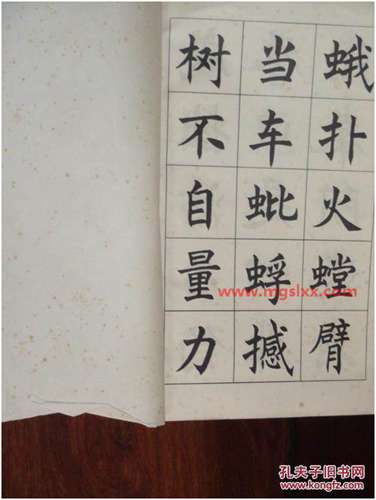 蛾扑火螳臂
当车蚍蜉撼
树不自量力
www.mgslxx.com
孔夫子旧书网
www.kongfz.com